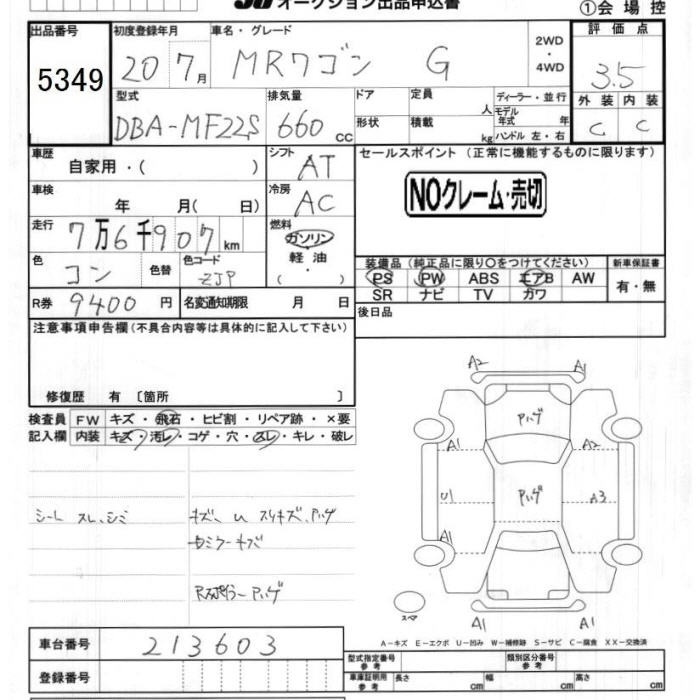 オークション出品申込書
①会場控
出品番号 初度登録年月 車名・グレード 評価点
5349 20 7月 MRワゴン G 2WD 4WD 3.5
型式 排気量 ドア 定員 人 ディーラー・並行 外装 内装
DBA-MF22S 660cc 形状 積載 kg モデル年式 年 ハンドル 左・右 C C
車歴 自家用・( ) シフト AT セールスポイント (正常に機能するものに限ります)
車検 年 月( 日) 冷房 AC NOクレーム・売切
走行 7万6千907km 燃料 ガソリン 軽油 ( )
色 コン 色替 色コード ZJP
装備品 (純正品に限り〇をつけてください) 新車保証書
PS PW ABS エアB AW 有・無
SR ナビ TV カワ
R券 9400円 名変通知期限 月 日 後日品
注意事項申告欄 (不具合内容等は具体的に記入して下さい)
修復歴 有 〔箇所 〕
検査員 FW キズ・飛石・ヒビ割・リペア跡・×要
記入欄 内装 キズ・汚レ・コゲ・穴・スレ・キレ・破レ
シート スレ、シミ
キズ、U スリキズ、ハゲ
A2 A1
A1 A2
U1 A3
A1
A1 A1
スペア
A-キズ E-エクボ U-凹み W-補修跡 S-サビ C-腐食 XX-交換済
車台番号 213603
型式指定番号 参考 類別区分番号 参考
登録番号 車庫証明用 参考 長さ cm 幅 cm 高さ cm